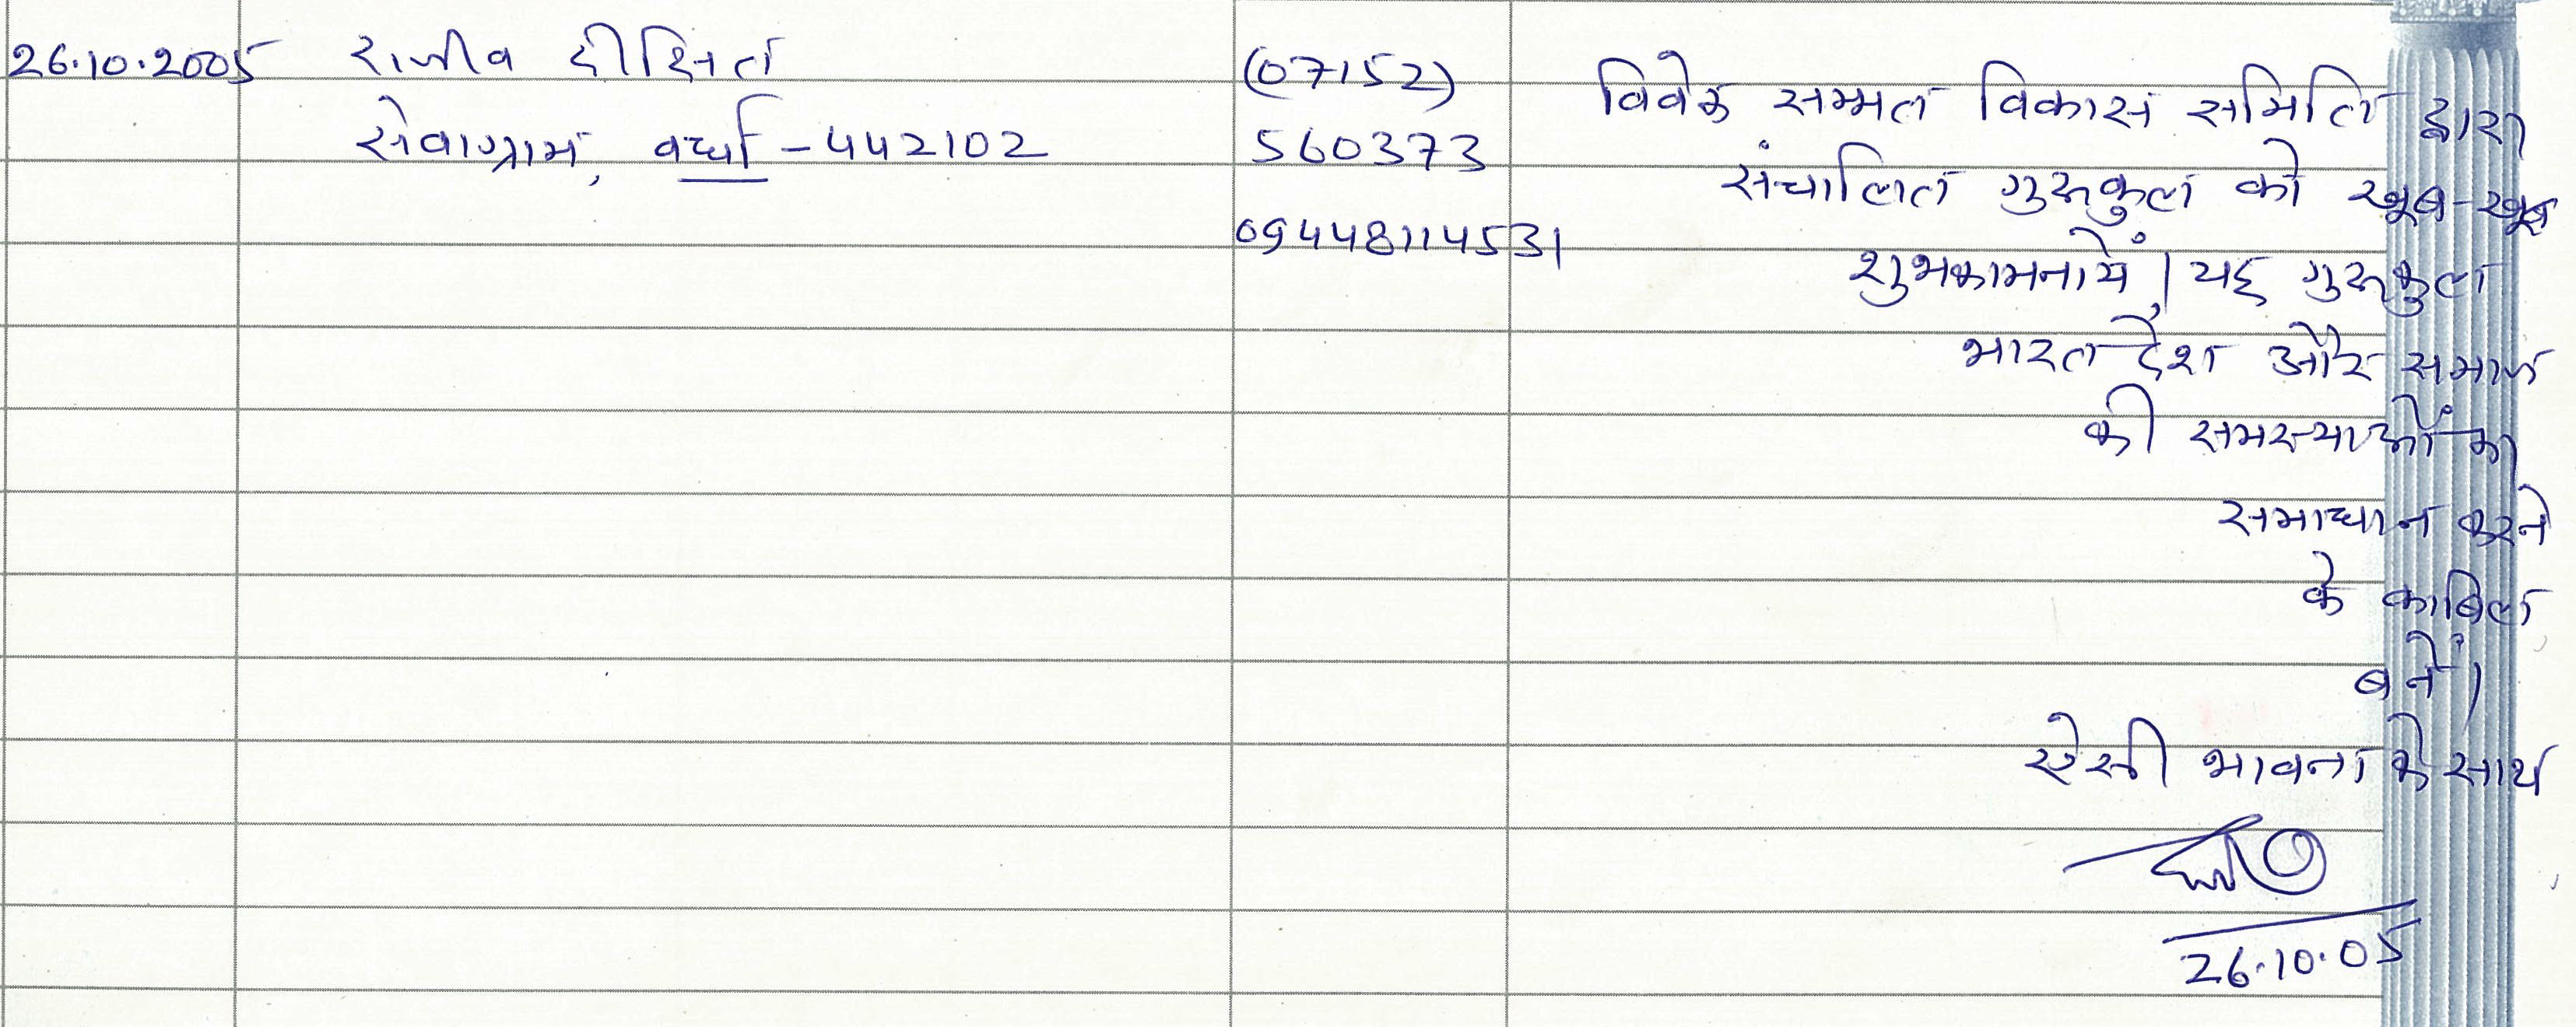 26.10.2005 राजीव दीक्षित (07152)
सेवाग्राम, वर्धा - 442102 560373
09448114531
विवेक सम्मत विकास समिति द्वारा
संचालित गुरूकुल को खूब-खूब
शुभकामनायें। यह गुरूकुल
भारत देश और समाज
की समस्याओं का
समाधान करने
के काबिल
बनें।
ऐसी भावना के साथ
26.10.05